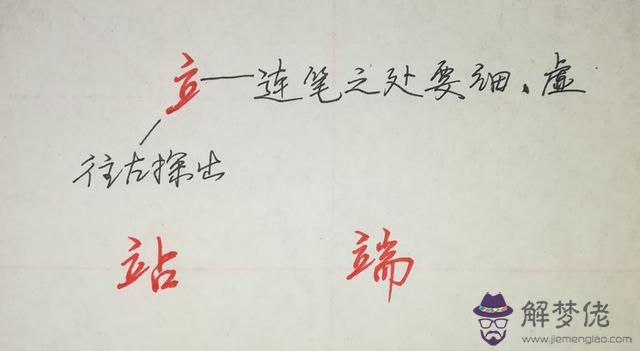 立——连笔之处要细、虚
往左探出
站 端
解梦佬
www.jiemenglao.com